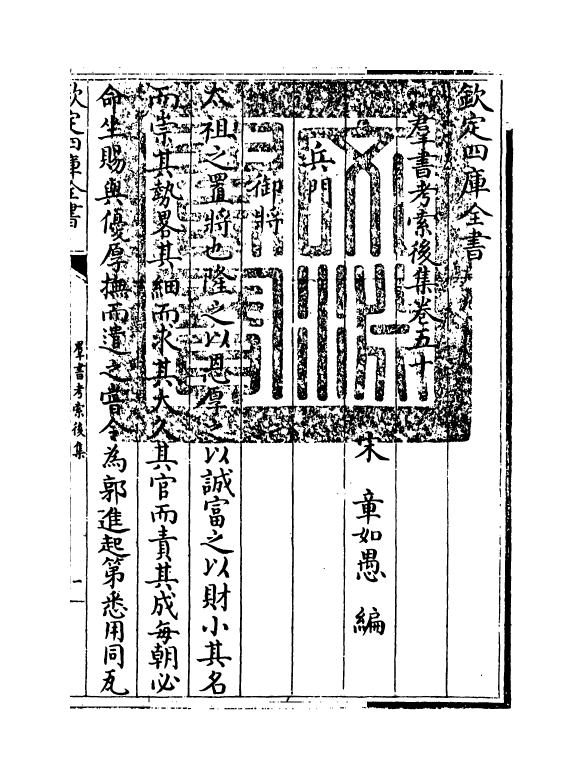 欽定四庫全書
羣書考索後集卷五十
宋 章如愚 編
兵門
御將
太祖之置將也隆之以恩厚之以誠富之以財小其名
而崇其勢畧其細而求其大久其官而責其成每朝必
命坐賜與優厚撫而遣之嘗令為郭進起第悉用同瓦
欽定四庫全書
羣書考索後集
一